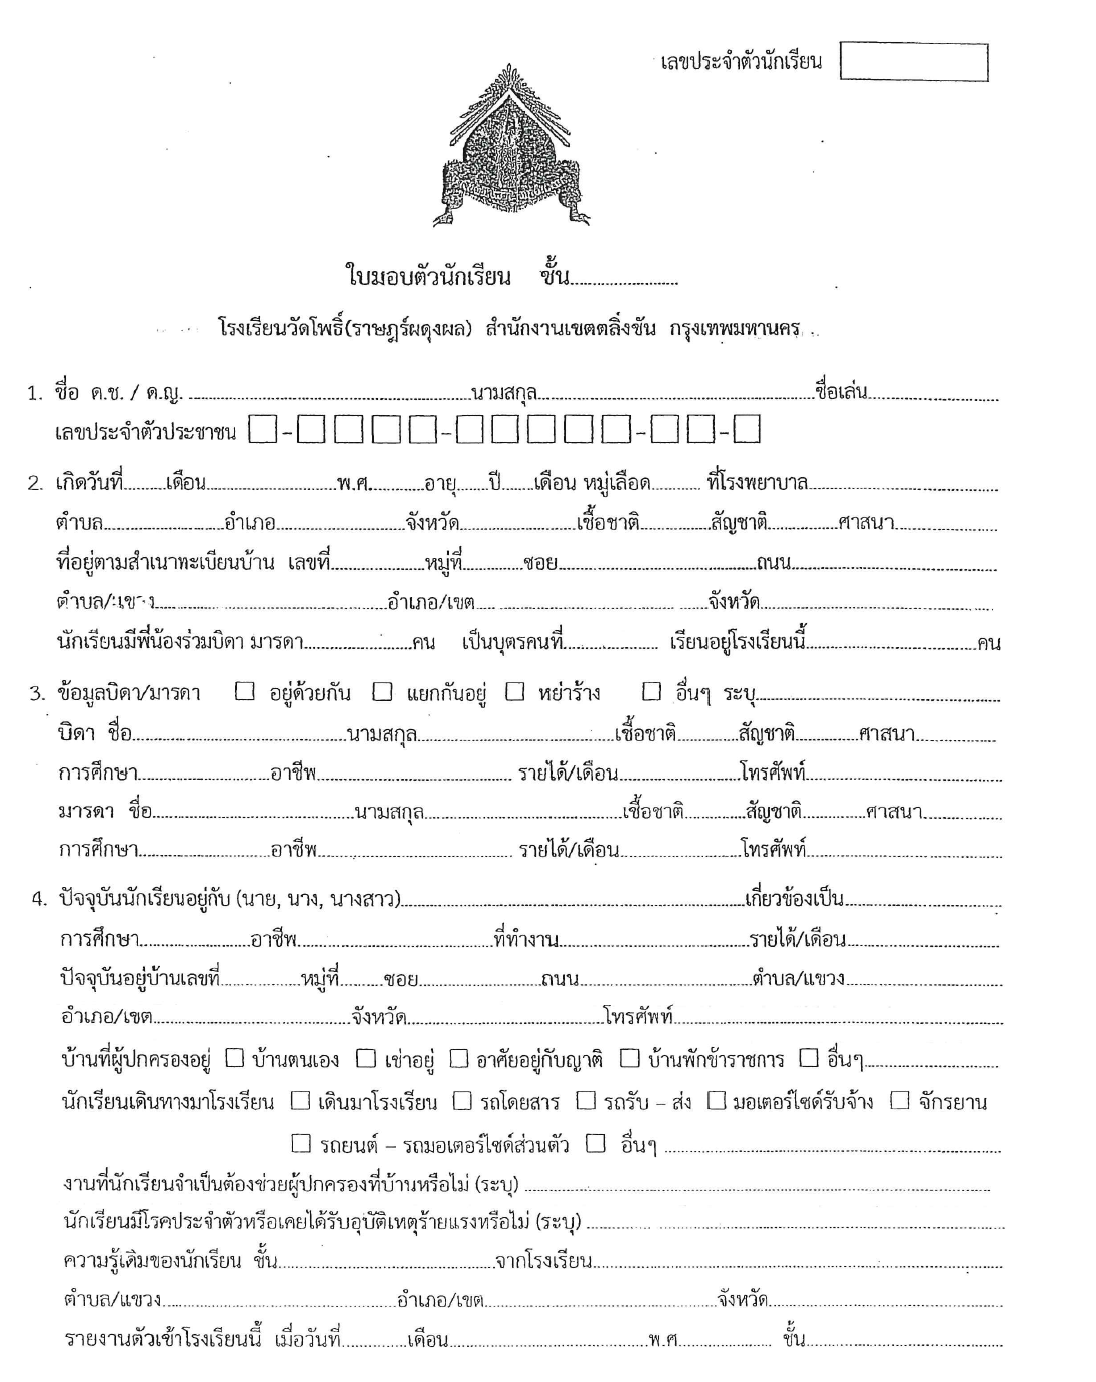 เลขประจำตัวนักเรียน
ใบมอบตัวนักเรียน ชั้น........................
โรงเรียนวัดโพธิ์(ราษฎร์ผดุงผล) สำนักงานเขตตลิ่งชัน กรุงเทพมหานคร
1. ชื่อ ด.ช. / ด.ญ. ........................นามสกุล........................ชื่อเล่น........................
เลขประจำตัวประชาชน □-□□□□-□□□□□-□□-□
2. เกิดวันที่.........เดือน........................พ.ศ............อายุ.......ปี.......เดือน หมู่เลือด........... ที่โรงพยาบาล........................
ตำบล........................อำเภอ........................จังหวัด........................เชื้อชาติ...............สัญชาติ...............ศาสนา...............
ที่อยู่ตามสำเนาทะเบียนบ้าน เลขที่...............หมู่ที่............ซอย........................ถนน........................
ตำบล/แขวง........................อำเภอ/เขต........................จังหวัด........................
นักเรียนมีพี่น้องร่วมบิดา มารดา........................คน เป็นบุตรคนที่..................... เรียนอยู่โรงเรียนนี้........................คน
3. ข้อมูลบิดา/มารดา □ อยู่ด้วยกัน □ แยกกันอยู่ □ หย่าร้าง □ อื่นๆ ระบุ........................
บิดา ชื่อ........................นามสกุล........................เชื้อชาติ............สัญชาติ............ศาสนา...............
การศึกษา........................อาชีพ........................ รายได้/เดือน........................โทรศัพท์........................
มารดา ชื่อ........................นามสกุล........................เชื้อชาติ............สัญชาติ............ศาสนา...............
การศึกษา........................อาชีพ........................ รายได้/เดือน........................โทรศัพท์........................
4. ปัจจุบันนักเรียนอยู่กับ (นาย, นาง, นางสาว)........................เกี่ยวข้องเป็น........................
การศึกษา........................อาชีพ........................ที่ทำงาน........................รายได้/เดือน........................
ปัจจุบันอยู่บ้านเลขที่...............หมู่ที่.........ซอย........................ถนน........................ตำบล/แขวง........................
อำเภอ/เขต........................จังหวัด........................โทรศัพท์........................
บ้านที่ผู้ปกครองอยู่ □ บ้านตนเอง □ เช่าอยู่ □ อาศัยอยู่กับญาติ □ บ้านพักข้าราชการ □ อื่นๆ........................
นักเรียนเดินทางมาโรงเรียน □ เดินมาโรงเรียน □ รถโดยสาร □ รถรับ – ส่ง □ มอเตอร์ไซด์รับจ้าง □ จักรยาน
□ รถยนต์ – รถมอเตอร์ไซด์ส่วนตัว □ อื่นๆ ........................
งานที่นักเรียนจำเป็นต้องช่วยผู้ปกครองที่บ้านหรือไม่ (ระบุ) ........................
นักเรียนมีโรคประจำตัวหรือเคยได้รับอุบัติเหตุร้ายแรงหรือไม่ (ระบุ) ........................
ความรู้เดิมของนักเรียน ชั้น........................จากโรงเรียน........................
ตำบล/แขวง........................อำเภอ/เขต........................จังหวัด........................
รายงานตัวเข้าโรงเรียนนี้ เมื่อวันที่...............เดือน........................พ.ศ..................... ชั้น........................